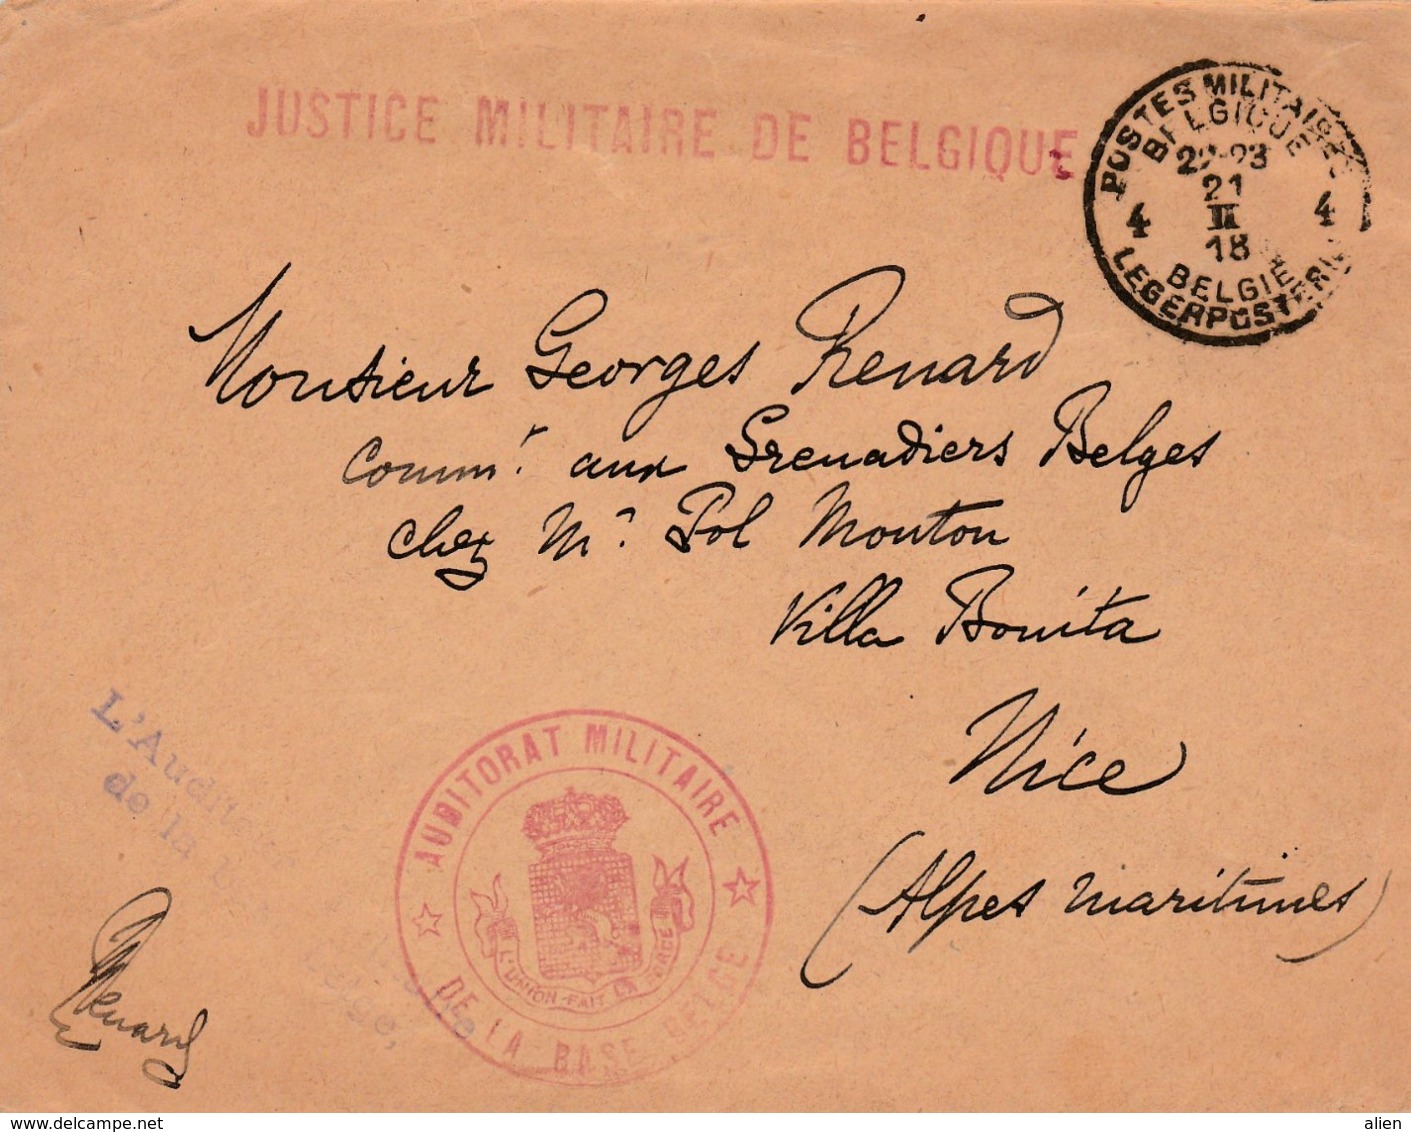 JUSTICE MILITAIRE DE BELGIQUE
POSTES MILITAIRES
BELGIQUE
22-23
21
III
18
4 4
BELGIE
LEGERPOSTERIJ
Monsieur Georges Renard
Commt aux Grenadiers Belges
chez Mr Pol Mouton
Villa Bonita
Nice
(Alpes maritimes)
L'Auditeur
de la
belge,
AUDITORAT MILITAIRE
DE LA BASE BELGE
L'UNION FAIT LA FORCE
Renard
www.delcampe.net
alien